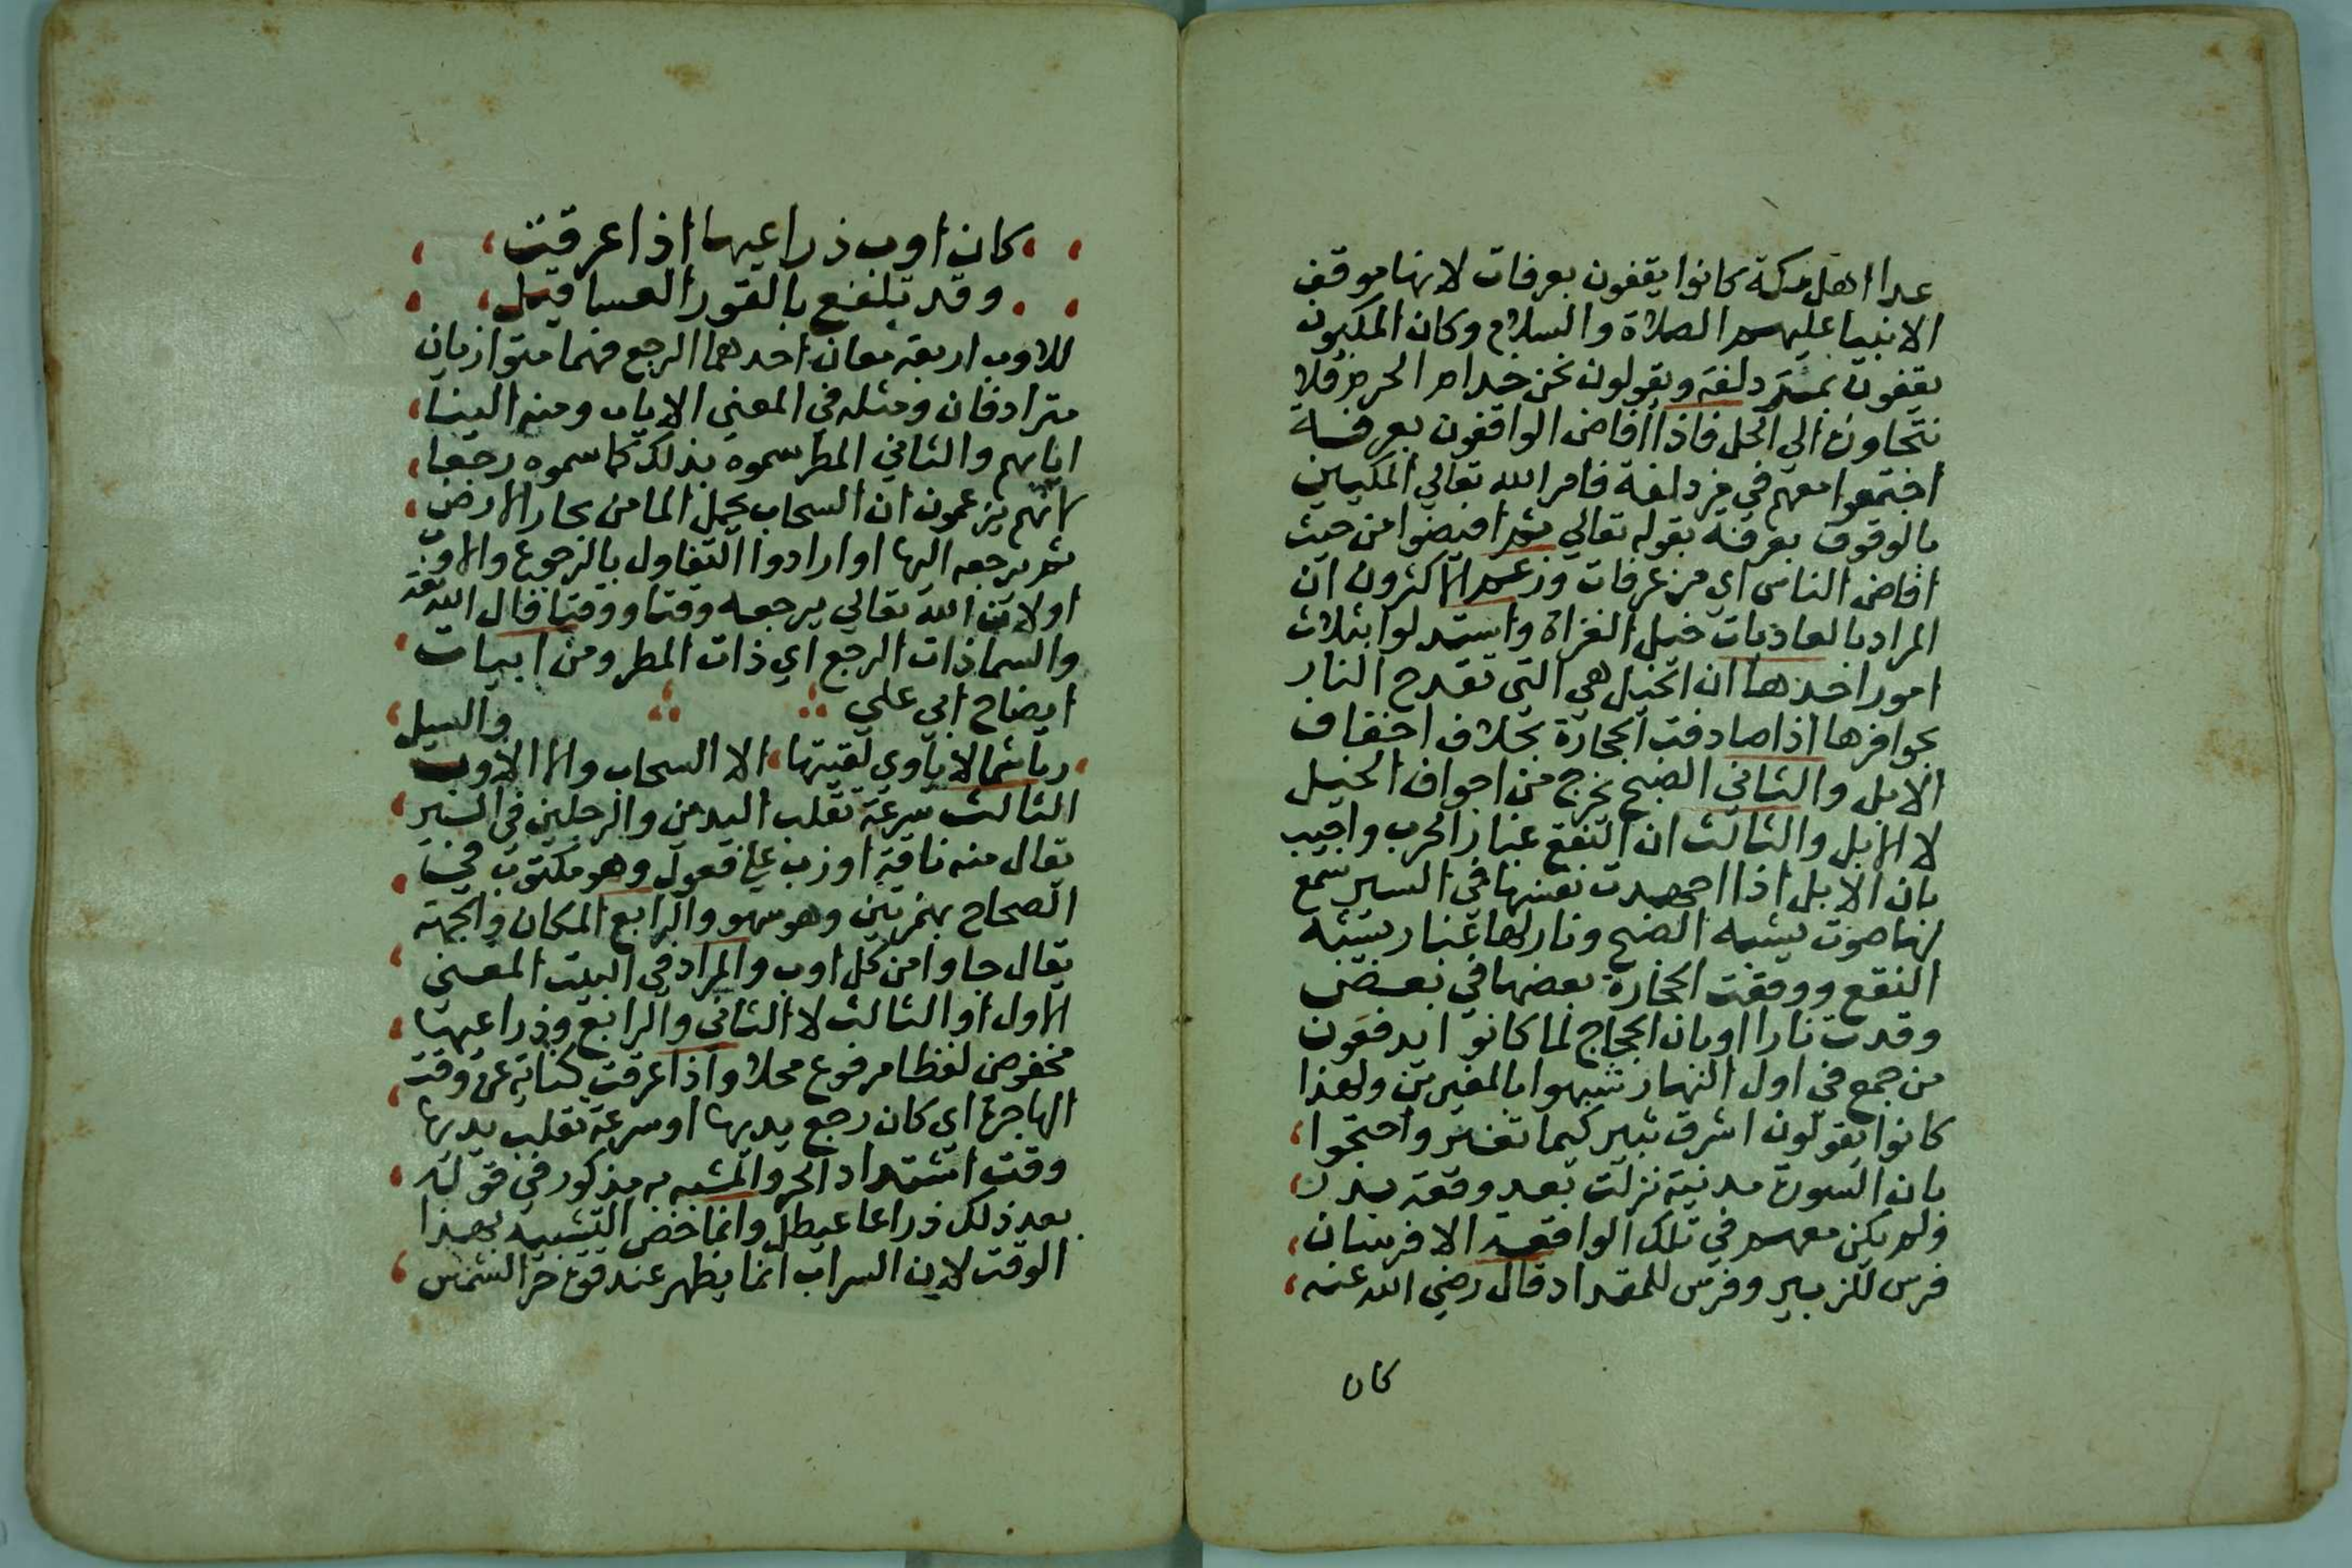 عدا اهل مكة كانوا يقفون بعرفات لانها موقف
الانبيا عليهم الصلاة والسلام وكان المكيون
يقفون بمزدلفة ويقولون نحن خدام الحرم فلا
نتجاوزه الي الحل فاذا افاض الواقفون بعرفة
اجتمعوا معهم في مزدلفة فامر الله تعالي المكيين
بالوقوف بعرفة بقوله تعالي ثم افيضوا من حيث
افاض الناس اي من عرفات وزعم الاكثرون ان
المراد بالعاديات خيل الغزاة واستدلوا بثلاث
امور احدها ان الخيل هي التي تقدح النار
بحوافرها اذا صادفت الحجارة بخلاف اخفاف
الابل والثاني الضبح يخرج من اجواف الخيل
لا الابل والثالث ان النقع غبار الحرب واجيب
بان الابل اذا اجهدت نفسها في السير سمع
لها صوت يشبه الضبح وثار لها غبار يشبه
النقع ووقعت الحجارة بعضها في بعض
وقدت نارا او بان الحجاج لما كانوا يدفعون
من جمع في اول النهار شبهوا بالمغيرين ولهذا
كانوا يقولون اشرق ثبير كيما نغير واحتجوا
بان السورة مدنية نزلت بعد وقعة بدر
ولم يكن معهم في تلك الواقعة الا فرسان
فرس للزبير وفرس للمقداد قال رضي الله عنه
كان
كان اوب ذراعيها اذا عرقت
وقد تلفع بالقور العساقيل
للاوب اربعة معان احدهما الرجع فهما متوازيان
مترادفان ومثله في المعني الاياب ومنه الينا
ايابهم والثاني المطر سموه بذلك كما سموه رجعا
لانهم يزعمون ان السحاب يحمل الما من بحار الارض
ثم يرجعه اليها او ارادوا التفاول بالرجوع والاوب
او لان الله تعالي يرجعه وقتا ووقتا قال الله تعـ
والسما ذات الرجع اي ذات المطر ومن ابيات
ايضاح ابي علي
ربا شما لا ياوي لقيتها الا السحاب والا الاوب والسيل
الثالث سرعة تقلب اليدين والرجلين في السير
يقال منه ناقة اووب علي فعول وهو مكتوب في
الصحاح بهمزتين وهو سهو والرابع المكان والجهة
يقال جاوا من كل اوب والمراد في البيت المعني
الاول او الثالث لا الثاني والرابع وذراعيها
مخفوض لفظا مرفوع محلا واذا عرقت كناية عن وقت
الهاجرة اي كان رجع يديها او سرعة تقلب يديها
وقت اشتداد الحر والمشبه به مذكور في قوله
بعد ذلك ذراعا عيطل وانما خص التشبيه بهذا
الوقت لان السراب انما يظهر عند قوة حر الشمس